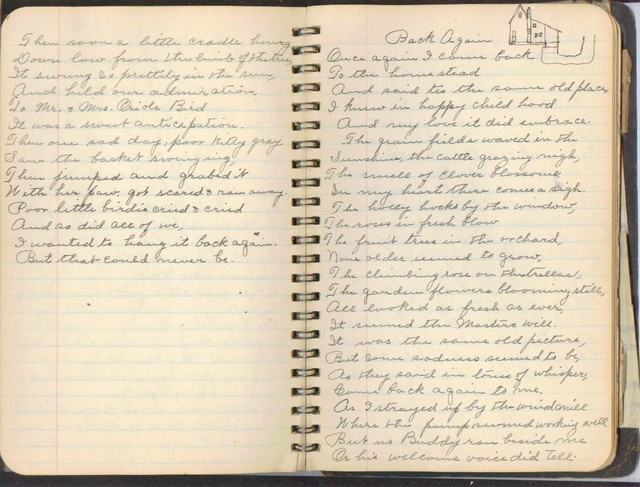 Then soon a little cradle hung
Down low from the limb of the tree
It swung so prettily in the sun,
And held our admiration.
To Mr. & Mrs. Oriole Bird
It was a sweet anticipation.
Then one sad day, poor Kitty gray
Saw the basket swinging,
Then jumped and grabed it
With her paw, got scared & ran away.
Poor little birdies cried & cried
And so did all of we,
I wanted to hang it back again.
But that could never be.
Back Again
Once again I came back
To the homestead
And said tis the same old place
I knew in happy child hood
And my love it did embrace.
The grain fields waved in the
Sunshine, the cattle grazing nigh,
The smell of clover blossoms,
In my heart there comes a sigh.
The holly hocks by the window,
The roses in fresh blow
The fruit trees in the orchard,
None older seemed to grow,
The climbing rose on the trellas,
The garden flowers blooming still,
All looked as fresh as ever,
It seemed the Masters will.
It was the same old picture,
But some sadness seemed to be,
As they said in tones of whisper,
Come back again to me.
As I strayed up by the windmill
Where the pump seemed working well
But no Buddy ran beside me
Or his welcome voice did tell.